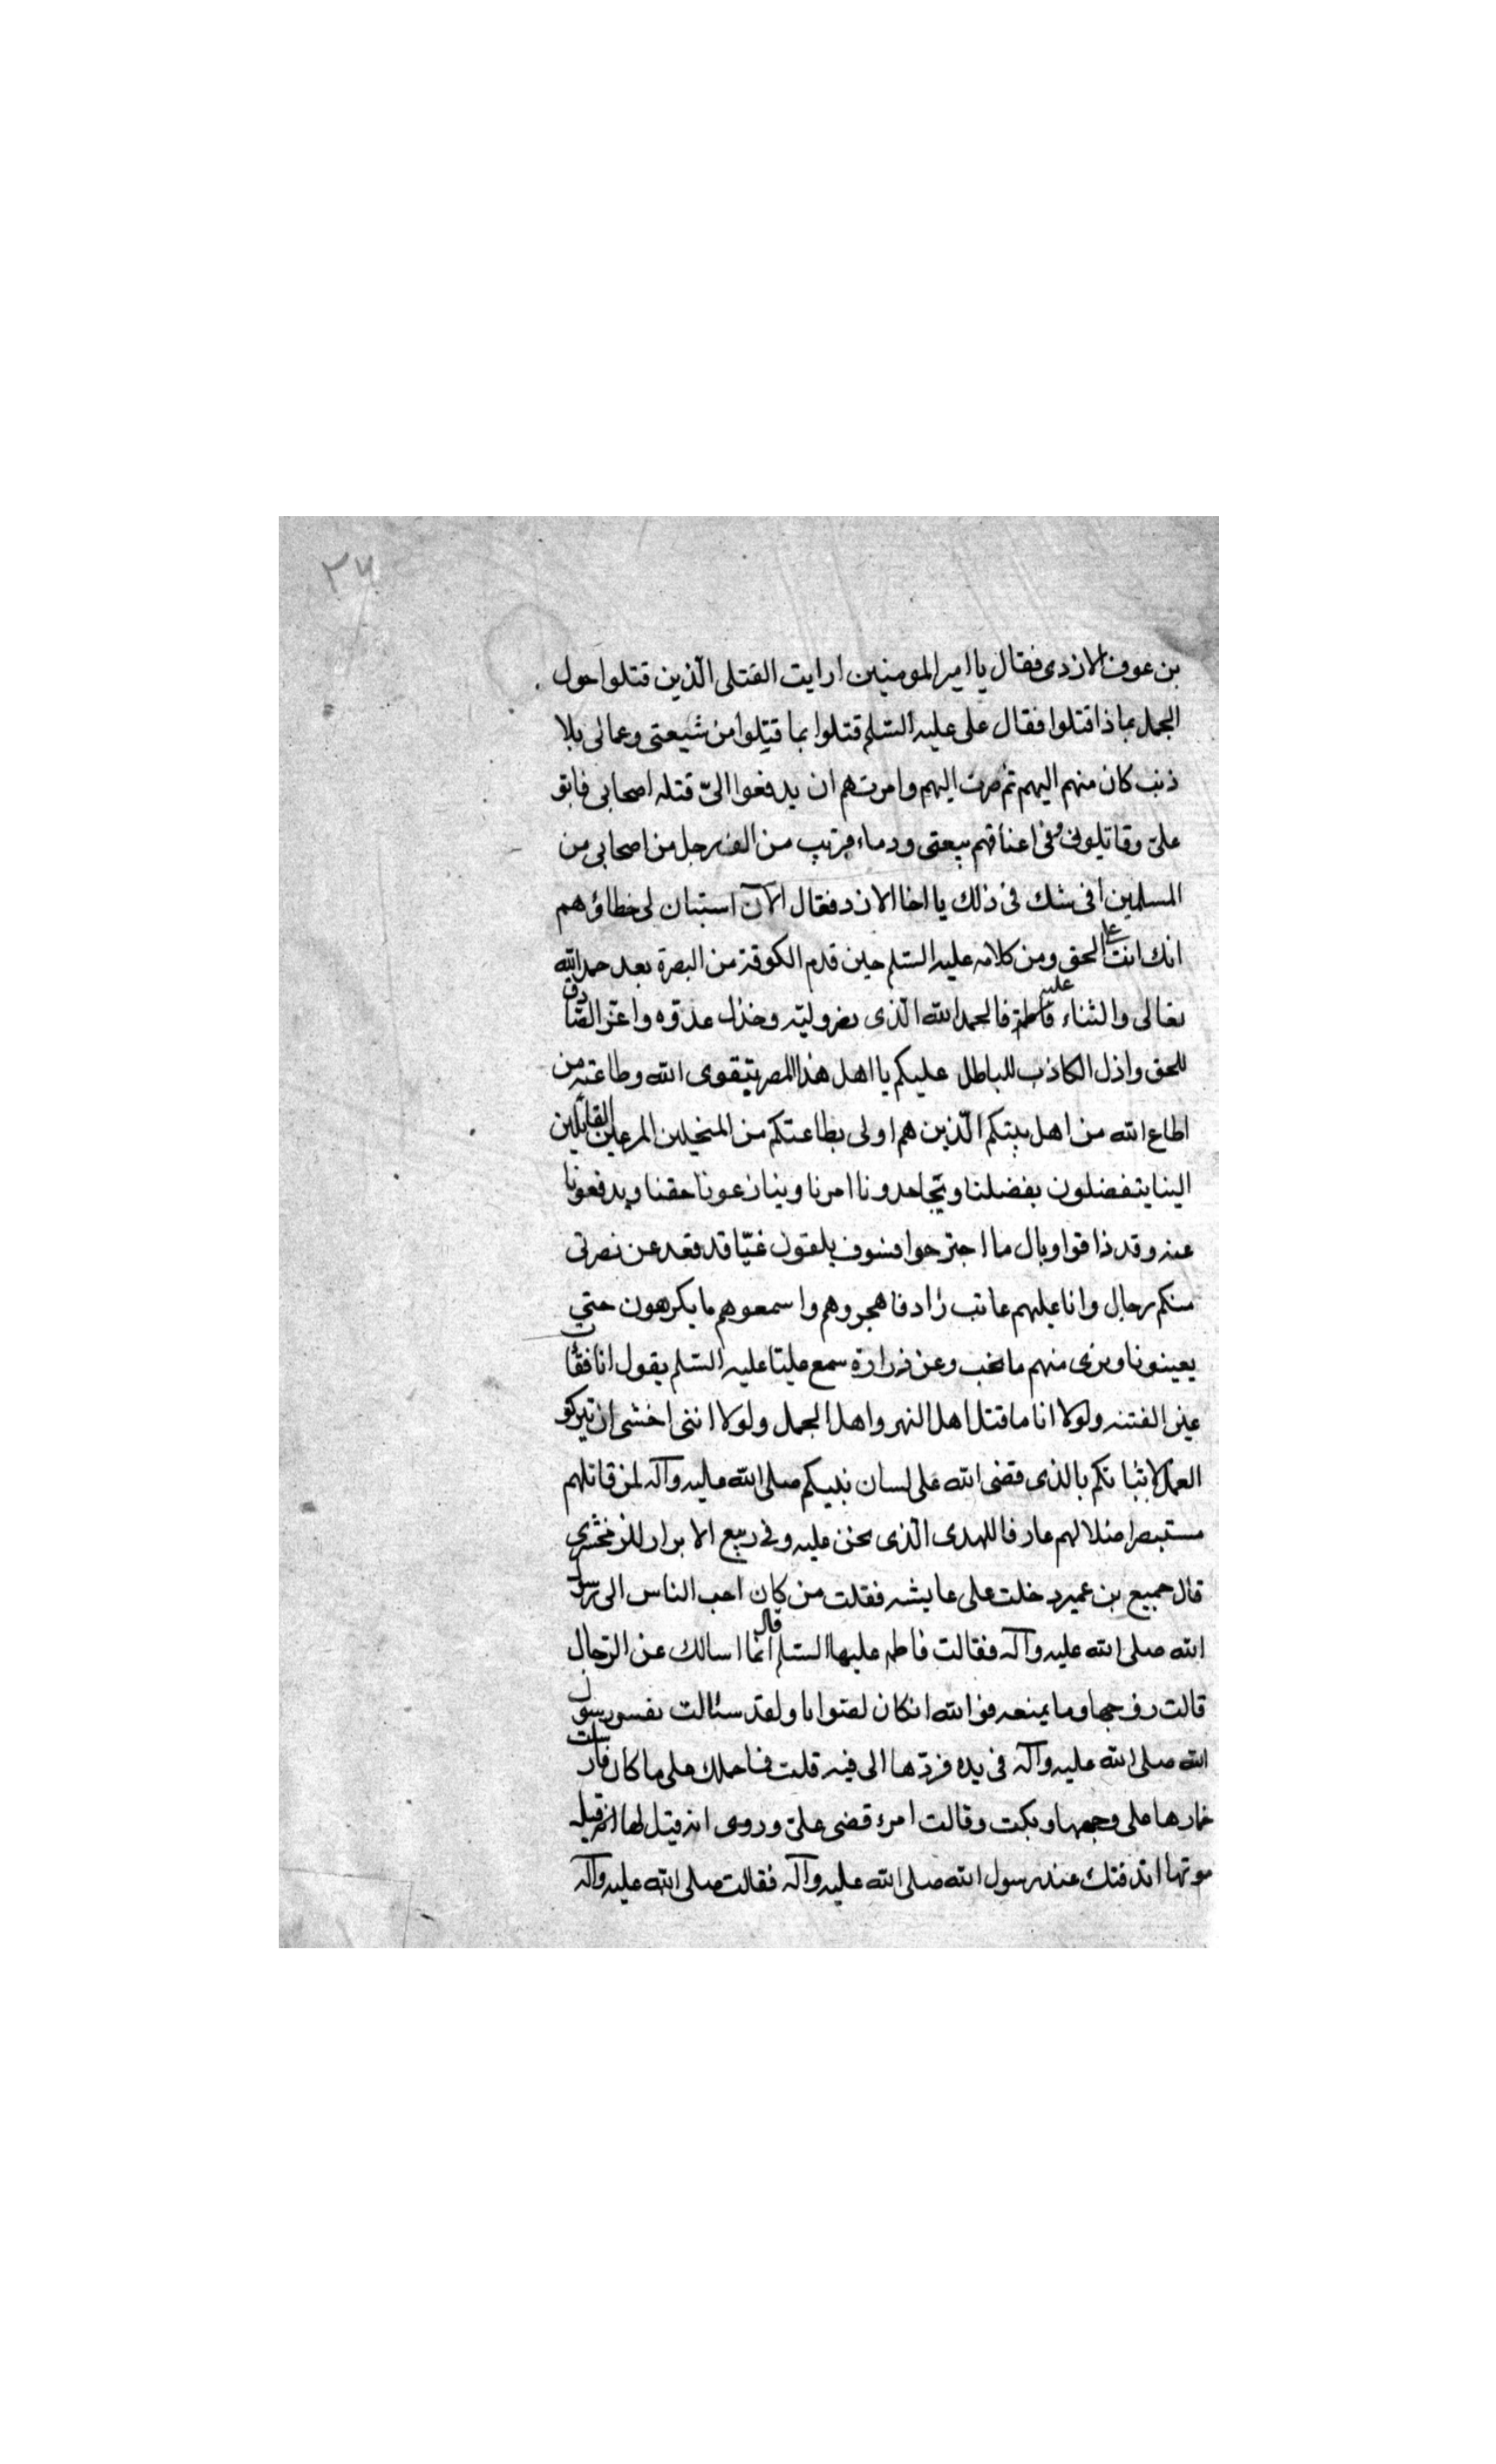 ٢٧
بن عوف الازدى فقال يا امير المومنين ارايت القتلى الّذين قتلوا حول
الجمل بماذا قتلوا فقال على عليه السّلم قتلوا بما قتلوا من شيعتى وعمالى بلا
ذنب كان منهم اليهم ثم صرت اليهم وامرتهم ان يدفعوا الىّ قتلة اصحابى فابو
علىّ وقاتلونى وفى اعناقهم بيعتى ودماء قريب من الف رجل من اصحابى من
المسلمين افى شك فى ذلك يا اخا الازد فقال الآن استبان لى خطاؤهم
انك انت على الحق ومن كلامه عليه السّلم حين قدم الكوفة من البصرة بعد حمد الله
تعالى والثناء عليه فالحمد لله الّذى نصر وليّه وخذل عدوّه واعزّ الصّادق
للحق واذل الكاذب للباطل عليكم يا اهل هذا المصر بتقوى الله وطاعته من
اطاع الله من اهل بيتكم الّذين هم اولى بطاعتكم من المنتحلين المدعين القائلين
الينا يتفضلون بفضلنا ويجاحدونا امرنا وينازعونا حقنا ويدفعونا
عنه وقد ذاقوا وبال ما اجترحوا فسوف يلقون غيّا قد قعد عن نصرتى
منكم رجال وانا عليهم عاتب زاد فاهجروهم واسمعوهم ما يكرهون حتى
يعينونا ونرى منهم ما نحب وعن زرارة سمع عليّا عليه السّلم يقول انا فقأت
عين الفتنه ولولا انا ما قتل اهل النهر واهل الجمل ولولا اننى اخشى ان تتركو
العمل لانبئاتكم بالذى قضى الله على لسان نبيكم صلى الله عليه وآله لمن قاتلهم
مستبصرا ضلالهم عارفا للهدى الّذى نحن عليه وفى ربيع الابرار للزمخشرى
قال جميع بن عمير دخلت على عايشه فقلت من كان احب الناس الى رسول
الله صلى الله عليه وآله فقالت فاطمه عليها السّلم قال انّما اسالك عن الرّجال
قالت زوجها وما يمنعه فوالله انكان لصواما ولقد سئالت نفس رسول
الله صلى الله عليه وآله فى يده فردّها الى فيه قلت فما حملك على ما كان فارسلت
خمارها على وجهها وبكت وقالت امرء قضى علىّ وروى انه قيل لها قبل
موتها اندفنك عند رسول الله صلى الله عليه وآله فقالت صلى الله عليه وآله